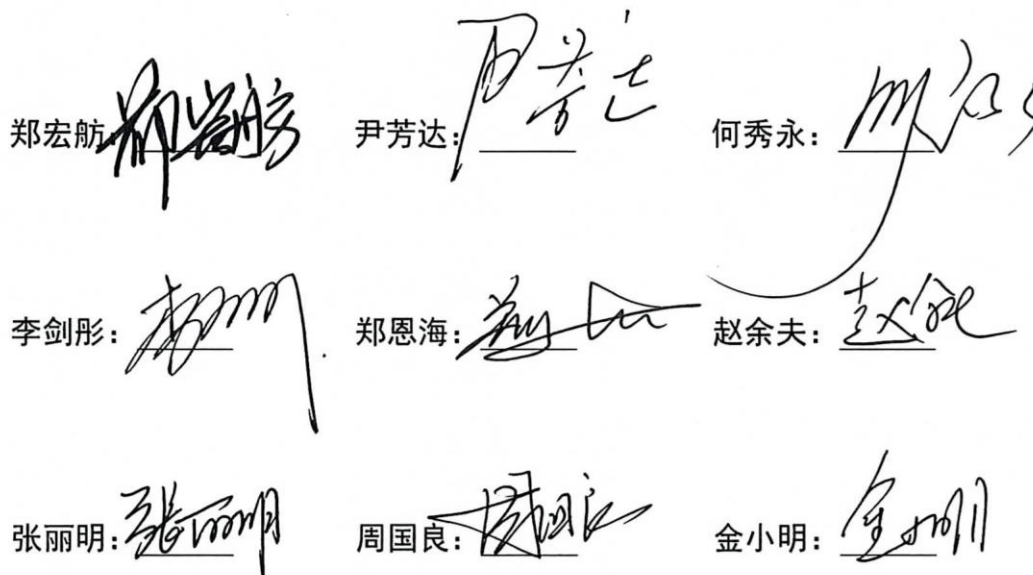 郑宏舫: 郑宏舫 尹芳达: 尹芳达 何秀永:
李剑彤: 郑恩海: 赵余夫:
张丽明: 张丽明 周国良: 周国良 金小明: 金小明